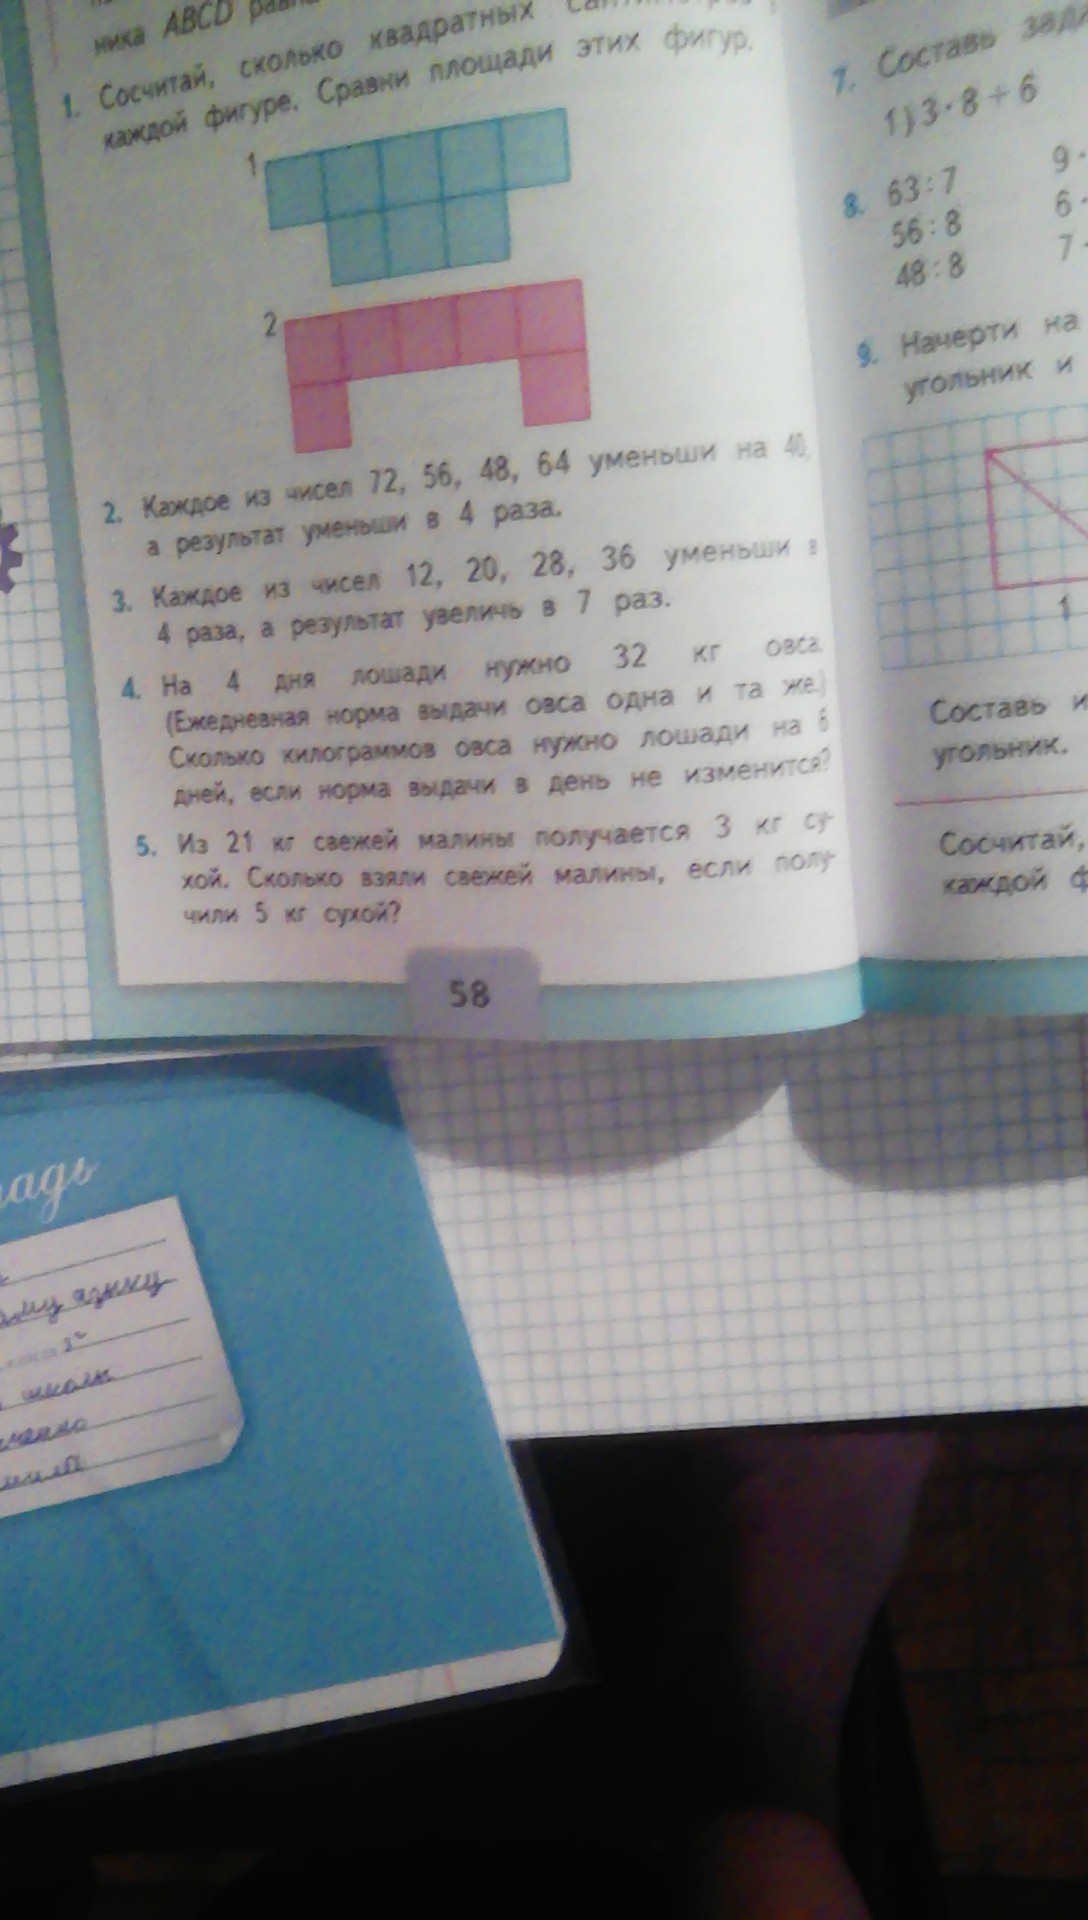 ника ABCD
1. Сосчитай, сколько квадратных
каждой фигуре. Сравни площади этих фигур.
1
2
2. Каждое из чисел 72, 56, 48, 64 уменьши на 40,
а результат уменьши в 4 раза.
3. Каждое из чисел 12, 20, 28, 36 уменьши в
4 раза, а результат увеличь в 7 раз.
4. На 4 дня лошади нужно 32 кг овса.
(Ежедневная норма выдачи овса одна и та же.)
Сколько килограммов овса нужно лошади на 6
дней, если норма выдачи в день не изменится?
5. Из 21 кг свежей малины получается 3 кг су-
хой. Сколько взяли свежей малины, если полу-
чили 5 кг сухой?
58
7. Составь
1) 3·8+6
8. 63:7 9·
56:8 6·
48:8 7·
9. Начерти на
угольник и
1
Составь и
угольник.
Сосчитай,
каждой ф
языку
школы